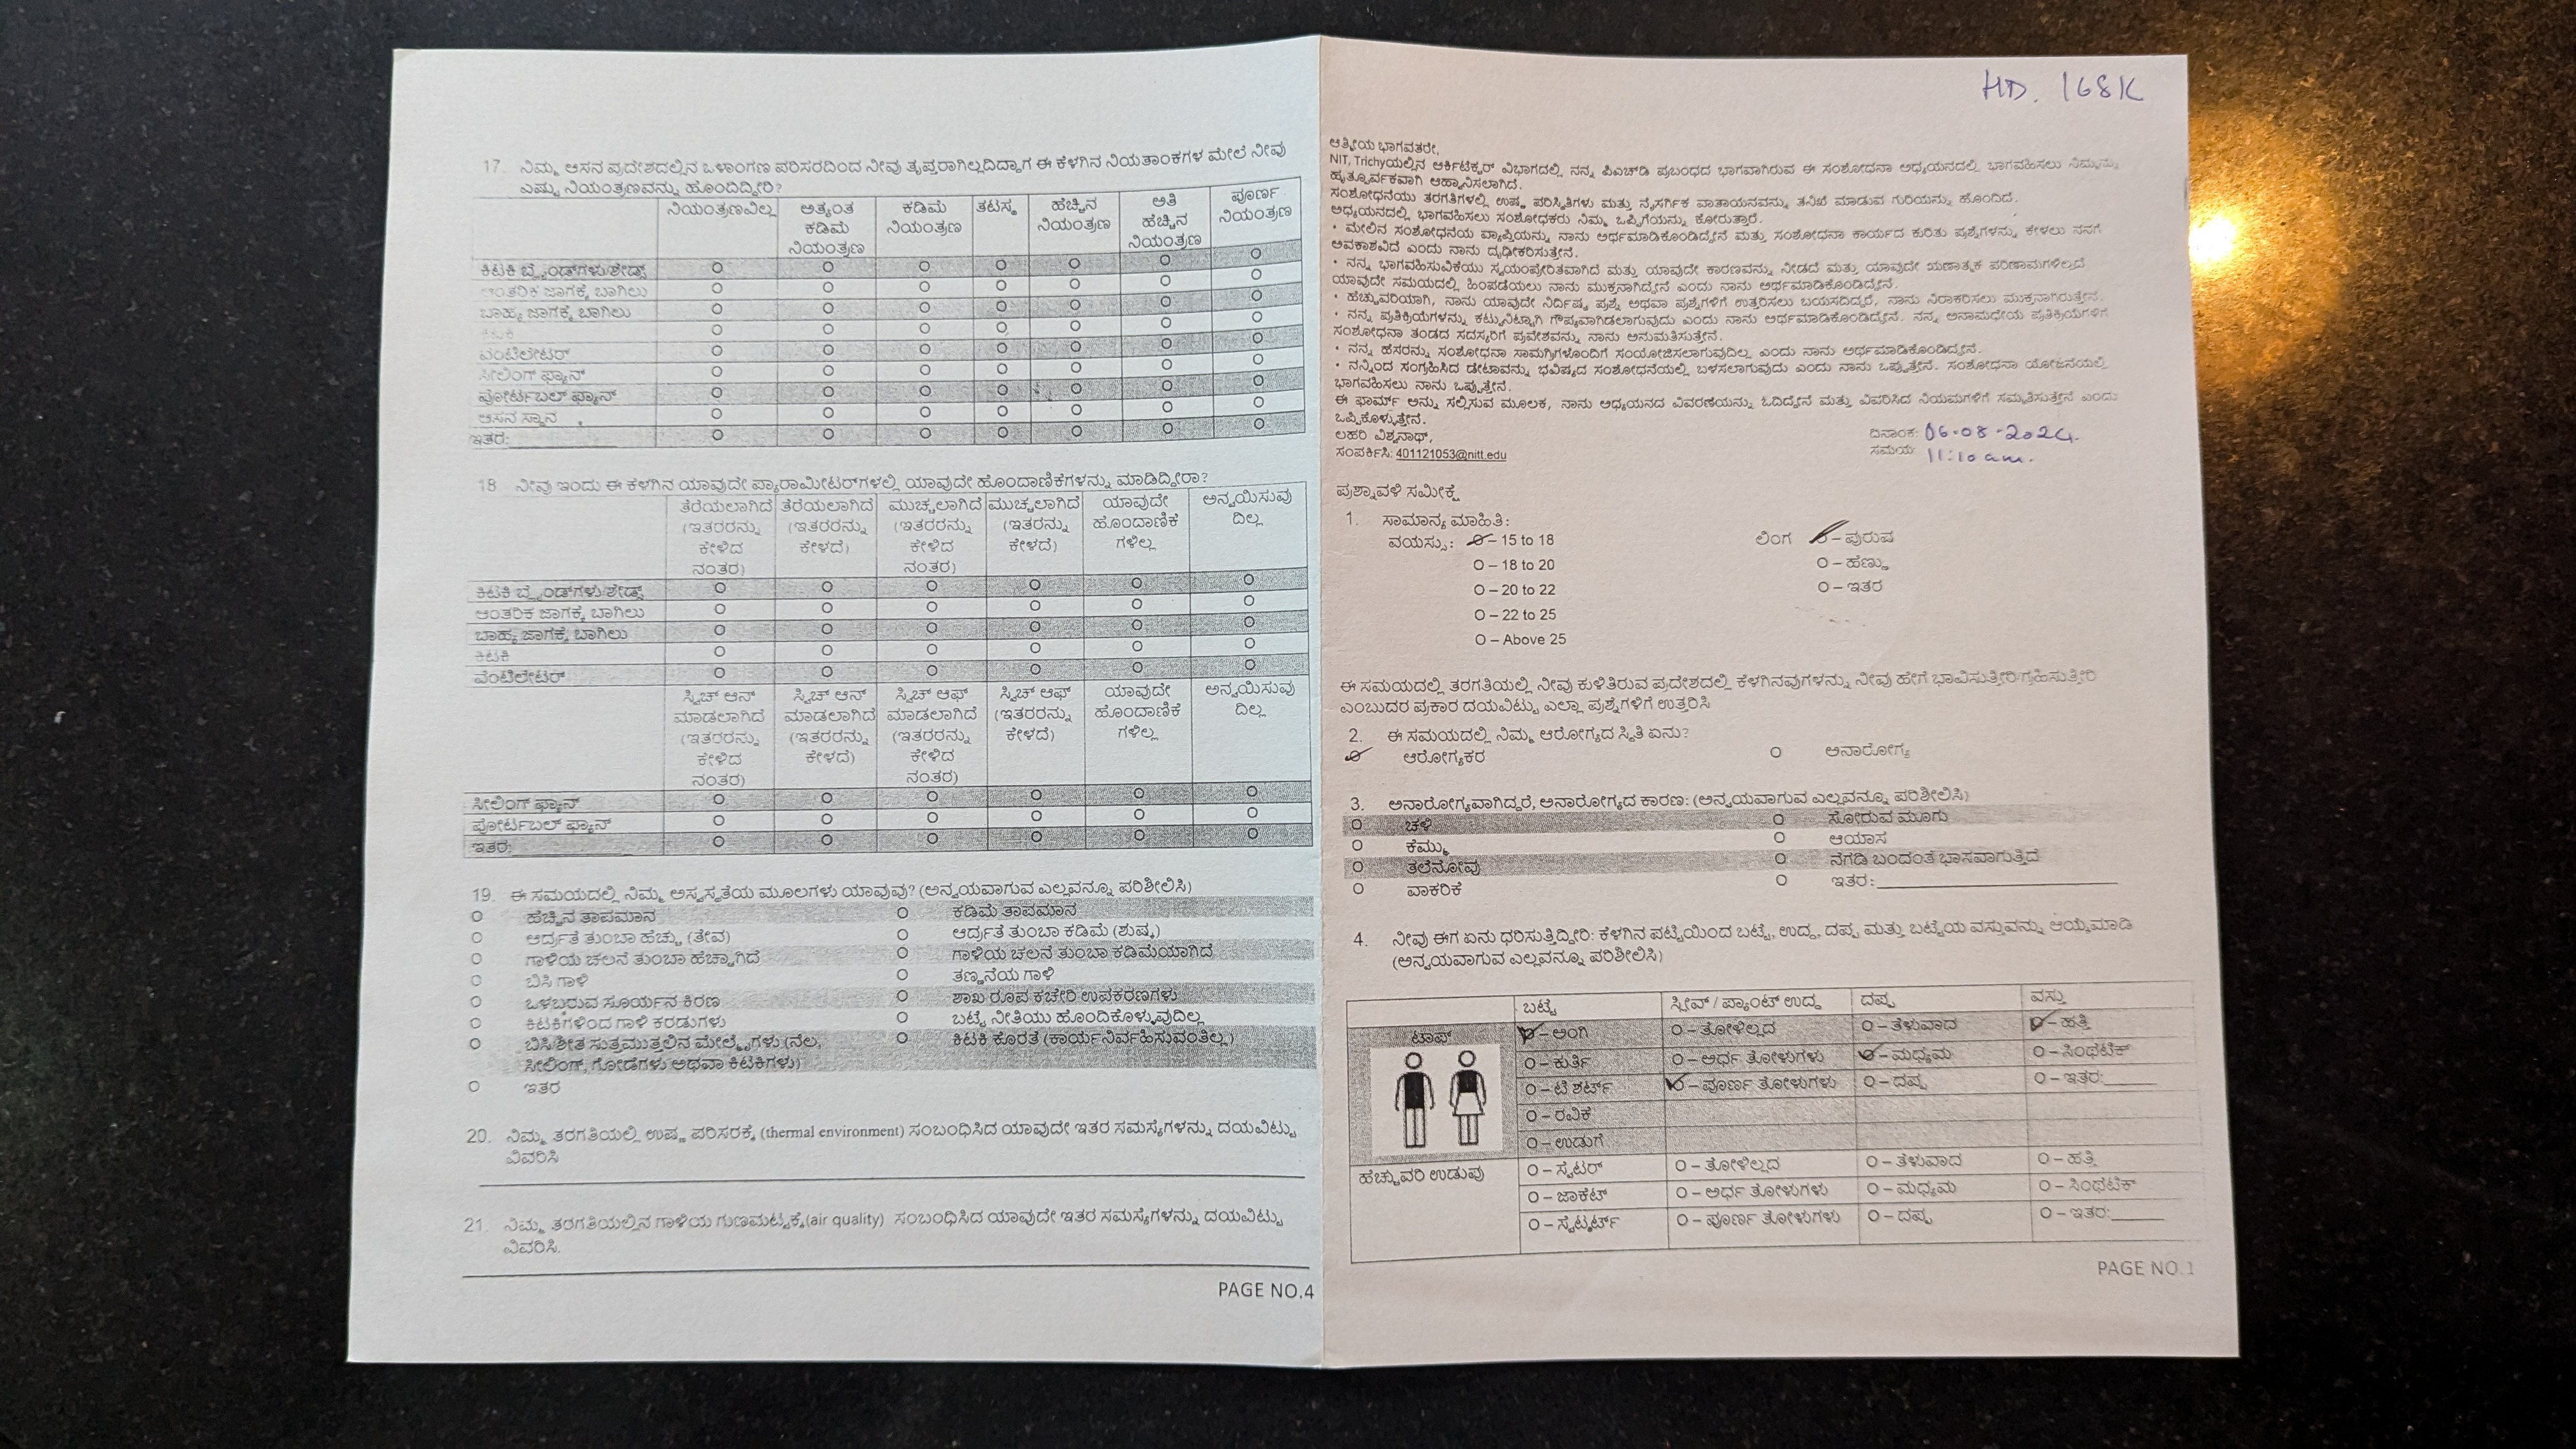 17. ನಿಮ್ಮ ಆಸನ ಪ್ರದೇಶದಲ್ಲಿನ ಒಳಾಂಗಣ ಪರಿಸರದಿಂದ ನೀವು ತೃಪ್ತರಾಗಿಲ್ಲದಿದ್ದಾಗ ಈ ಕೆಳಗಿನ ನಿಯತಾಂಕಗಳ ಮೇಲೆ ನೀವು
ಎಷ್ಟು ನಿಯಂತ್ರಣವನ್ನು ಹೊಂದಿದ್ದೀರಿ?
ನಿಯಂತ್ರಣವಿಲ್ಲ ಅತ್ಯಂತ ಕಡಿಮೆ ನಿಯಂತ್ರಣ ಕಡಿಮೆ ನಿಯಂತ್ರಣ ತಟಸ್ಥ ಹೆಚ್ಚಿನ ನಿಯಂತ್ರಣ ಅತಿ ಹೆಚ್ಚಿನ ನಿಯಂತ್ರಣ ಪೂರ್ಣ ನಿಯಂತ್ರಣ
ಕಿಟಕಿ ಬ್ಲೈಂಡ್‌ಗಳು/ಶೇಡ್ಸ್ O O O O O O O
ಆಂತರಿಕ ಜಾಗಕ್ಕೆ ಬಾಗಿಲು O O O O O O O
ಬಾಹ್ಯ ಜಾಗಕ್ಕೆ ಬಾಗಿಲು O O O O O O O
ಕಿಟಕಿ O O O O O O O
ವೆಂಟಿಲೇಟರ್ O O O O O O O
ಸೀಲಿಂಗ್ ಫ್ಯಾನ್ O O O O O O O
ಪೋರ್ಟಬಲ್ ಫ್ಯಾನ್ O O O O O O O
ಆಸನ ಸ್ಥಾನ O O O O O O O
ಇತರ: O O O O O O O
18 ನೀವು ಇಂದು ಈ ಕೆಳಗಿನ ಯಾವುದೇ ಪ್ಯಾರಾಮೀಟರ್‌ಗಳಲ್ಲಿ ಯಾವುದೇ ಹೊಂದಾಣಿಕೆಗಳನ್ನು ಮಾಡಿದ್ದೀರಾ?
ತೆರೆಯಲಾಗಿದೆ (ಇತರರನ್ನು ಕೇಳಿದ ನಂತರ) ತೆರೆಯಲಾಗಿದೆ (ಇತರರನ್ನು ಕೇಳದೆ) ಮುಚ್ಚಲಾಗಿದೆ (ಇತರರನ್ನು ಕೇಳಿದ ನಂತರ) ಮುಚ್ಚಲಾಗಿದೆ (ಇತರರನ್ನು ಕೇಳದೆ) ಯಾವುದೇ ಹೊಂದಾಣಿಕೆ ಗಳಿಲ್ಲ ಅನ್ವಯಿಸುವು ದಿಲ್ಲ
ಕಿಟಕಿ ಬ್ಲೈಂಡ್‌ಗಳು/ಶೇಡ್ಸ್ O O O O O O
ಆಂತರಿಕ ಜಾಗಕ್ಕೆ ಬಾಗಿಲು O O O O O O
ಬಾಹ್ಯ ಜಾಗಕ್ಕೆ ಬಾಗಿಲು O O O O O O
ಕಿಟಕಿ O O O O O O
ವೆಂಟಿಲೇಟರ್ O O O O O O
ಸ್ವಿಚ್ ಆನ್ ಮಾಡಲಾಗಿದೆ (ಇತರರನ್ನು ಕೇಳಿದ ನಂತರ) ಸ್ವಿಚ್ ಆನ್ ಮಾಡಲಾಗಿದೆ (ಇತರರನ್ನು ಕೇಳದೆ) ಸ್ವಿಚ್ ಆಫ್ ಮಾಡಲಾಗಿದೆ (ಇತರರನ್ನು ಕೇಳಿದ ನಂತರ) ಸ್ವಿಚ್ ಆಫ್ (ಇತರರನ್ನು ಕೇಳದೆ) ಯಾವುದೇ ಹೊಂದಾಣಿಕೆ ಗಳಿಲ್ಲ ಅನ್ವಯಿಸುವು ದಿಲ್ಲ
ಸೀಲಿಂಗ್ ಫ್ಯಾನ್ O O O O O O
ಪೋರ್ಟಬಲ್ ಫ್ಯಾನ್ O O O O O O
ಇತರ: O O O O O O
19. ಈ ಸಮಯದಲ್ಲಿ ನಿಮ್ಮ ಅಸ್ವಸ್ಥತೆಯ ಮೂಲಗಳು ಯಾವುವು? (ಅನ್ವಯವಾಗುವ ಎಲ್ಲವನ್ನೂ ಪರಿಶೀಲಿಸಿ)
O ಹೆಚ್ಚಿನ ತಾಪಮಾನ O ಕಡಿಮೆ ತಾಪಮಾನ
O ಆರ್ದ್ರತೆ ತುಂಬಾ ಹೆಚ್ಚು (ತೇವ) O ಆರ್ದ್ರತೆ ತುಂಬಾ ಕಡಿಮೆ (ಶುಷ್ಕ)
O ಗಾಳಿಯ ಚಲನೆ ತುಂಬಾ ಹೆಚ್ಚಾಗಿದೆ O ಗಾಳಿಯ ಚಲನೆ ತುಂಬಾ ಕಡಿಮೆಯಾಗಿದೆ
O ಬಿಸಿ ಗಾಳಿ O ತಣ್ಣನೆಯ ಗಾಳಿ
O ಒಳಬರುವ ಸೂರ್ಯನ ಕಿರಣ O ಶಾಖ ರೂಪ ಕಚೇರಿ ಉಪಕರಣಗಳು
O ಕಿಟಕಿಗಳಿಂದ ಗಾಳಿ ಕರಡುಗಳು O ಬಟ್ಟೆ ನೀತಿಯು ಹೊಂದಿಕೊಳ್ಳುವುದಿಲ್ಲ
O ಬಿಸಿ/ಶೀತ ಸುತ್ತಮುತ್ತಲಿನ ಮೇಲ್ಮೈಗಳು (ನೆಲ, O ಕಿಟಕಿ ಕೊರತೆ (ಕಾರ್ಯನಿರ್ವಹಿಸುವಂತಿಲ್ಲ)
ಸೀಲಿಂಗ್, ಗೋಡೆಗಳು ಅಥವಾ ಕಿಟಕಿಗಳು)
O ಇತರ
20. ನಿಮ್ಮ ತರಗತಿಯಲ್ಲಿ ಉಷ್ಣ ಪರಿಸರಕ್ಕೆ (thermal environment) ಸಂಬಂಧಿಸಿದ ಯಾವುದೇ ಇತರ ಸಮಸ್ಯೆಗಳನ್ನು ದಯವಿಟ್ಟು
ವಿವರಿಸಿ
21. ನಿಮ್ಮ ತರಗತಿಯಲ್ಲಿನ ಗಾಳಿಯ ಗುಣಮಟ್ಟಕ್ಕೆ(air quality) ಸಂಬಂಧಿಸಿದ ಯಾವುದೇ ಇತರ ಸಮಸ್ಯೆಗಳನ್ನು ದಯವಿಟ್ಟು
ವಿವರಿಸಿ.
PAGE NO.4
HD. 168K
ಆತ್ಮೀಯ ಭಾಗವತರೇ,
NIT, Trichyಯಲ್ಲಿನ ಆರ್ಕಿಟೆಕ್ಚರ್ ವಿಭಾಗದಲ್ಲಿ ನನ್ನ ಪಿಎಚ್‌ಡಿ ಪ್ರಬಂಧದ ಭಾಗವಾಗಿರುವ ಈ ಸಂಶೋಧನಾ ಅಧ್ಯಯನದಲ್ಲಿ ಭಾಗವಹಿಸಲು ನಿಮ್ಮನ್ನು
ಹೃತ್ಪೂರ್ವಕವಾಗಿ ಆಹ್ವಾನಿಸಲಾಗಿದೆ.
ಸಂಶೋಧನೆಯು ತರಗತಿಗಳಲ್ಲಿ ಉಷ್ಣ ಪರಿಸ್ಥಿತಿಗಳು ಮತ್ತು ನೈಸರ್ಗಿಕ ವಾತಾಯನವನ್ನು ತನಿಖೆ ಮಾಡುವ ಗುರಿಯನ್ನು ಹೊಂದಿದೆ.
ಅಧ್ಯಯನದಲ್ಲಿ ಭಾಗವಹಿಸಲು ಸಂಶೋಧಕರು ನಿಮ್ಮ ಒಪ್ಪಿಗೆಯನ್ನು ಕೋರುತ್ತಾರೆ.
• ಮೇಲಿನ ಸಂಶೋಧನೆಯ ವ್ಯಾಪ್ತಿಯನ್ನು ನಾನು ಅರ್ಥಮಾಡಿಕೊಂಡಿದ್ದೇನೆ ಮತ್ತು ಸಂಶೋಧನಾ ಕಾರ್ಯದ ಕುರಿತು ಪ್ರಶ್ನೆಗಳನ್ನು ಕೇಳಲು ನನಗೆ
ಅವಕಾಶವಿದೆ ಎಂದು ನಾನು ದೃಢೀಕರಿಸುತ್ತೇನೆ.
• ನನ್ನ ಭಾಗವಹಿಸುವಿಕೆಯು ಸ್ವಯಂಪ್ರೇರಿತವಾಗಿದೆ ಮತ್ತು ಯಾವುದೇ ಕಾರಣವನ್ನು ನೀಡದೆ ಮತ್ತು ಯಾವುದೇ ಋಣಾತ್ಮಕ ಪರಿಣಾಮಗಳಿಲ್ಲದೆ
ಯಾವುದೇ ಸಮಯದಲ್ಲಿ ಹಿಂಪಡೆಯಲು ನಾನು ಮುಕ್ತನಾಗಿದ್ದೇನೆ ಎಂದು ನಾನು ಅರ್ಥಮಾಡಿಕೊಂಡಿದ್ದೇನೆ.
• ಹೆಚ್ಚುವರಿಯಾಗಿ, ನಾನು ಯಾವುದೇ ನಿರ್ದಿಷ್ಟ ಪ್ರಶ್ನೆ ಅಥವಾ ಪ್ರಶ್ನೆಗಳಿಗೆ ಉತ್ತರಿಸಲು ಬಯಸದಿದ್ದರೆ, ನಾನು ನಿರಾಕರಿಸಲು ಮುಕ್ತನಾಗಿರುತ್ತೇನೆ.
• ನನ್ನ ಪ್ರತಿಕ್ರಿಯೆಗಳನ್ನು ಕಟ್ಟುನಿಟ್ಟಾಗಿ ಗೌಪ್ಯವಾಗಿಡಲಾಗುವುದು ಎಂದು ನಾನು ಅರ್ಥಮಾಡಿಕೊಂಡಿದ್ದೇನೆ. ನನ್ನ ಅನಾಮಧೇಯ ಪ್ರತಿಕ್ರಿಯೆಗಳಿಗೆ
ಸಂಶೋಧನಾ ತಂಡದ ಸದಸ್ಯರಿಗೆ ಪ್ರವೇಶವನ್ನು ನಾನು ಅನುಮತಿಸುತ್ತೇನೆ.
• ನನ್ನ ಹೆಸರನ್ನು ಸಂಶೋಧನಾ ಸಾಮಗ್ರಿಗಳೊಂದಿಗೆ ಸಂಯೋಜಿಸಲಾಗುವುದಿಲ್ಲ ಎಂದು ನಾನು ಅರ್ಥಮಾಡಿಕೊಂಡಿದ್ದೇನೆ.
• ನನ್ನಿಂದ ಸಂಗ್ರಹಿಸಿದ ಡೇಟಾವನ್ನು ಭವಿಷ್ಯದ ಸಂಶೋಧನೆಯಲ್ಲಿ ಬಳಸಲಾಗುವುದು ಎಂದು ನಾನು ಒಪ್ಪುತ್ತೇನೆ. ಸಂಶೋಧನಾ ಯೋಜನೆಯಲ್ಲಿ
ಭಾಗವಹಿಸಲು ನಾನು ಒಪ್ಪುತ್ತೇನೆ.
ಈ ಫಾರ್ಮ್ ಅನ್ನು ಸಲ್ಲಿಸುವ ಮೂಲಕ, ನಾನು ಅಧ್ಯಯನದ ವಿವರಣೆಯನ್ನು ಓದಿದ್ದೇನೆ ಮತ್ತು ವಿವರಿಸಿದ ನಿಯಮಗಳಿಗೆ ಸಮ್ಮತಿಸುತ್ತೇನೆ ಎಂದು
ಒಪ್ಪಿಕೊಳ್ಳುತ್ತೇನೆ.
ಲಹರಿ ವಿಶ್ವನಾಥ್, ದಿನಾಂಕ: 06-08-2024.
ಸಂಪರ್ಕಿಸಿ: 401121053@nitt.edu ಸಮಯ: 11:10 am.
ಪ್ರಶ್ನಾವಳಿ ಸಮೀಕ್ಷೆ
1. ಸಾಮಾನ್ಯ ಮಾಹಿತಿ:
ವಯಸ್ಸು: O – 15 to 18 ಲಿಂಗ O – ಪುರುಷ
O – 18 to 20 O – ಹೆಣ್ಣು
O – 20 to 22 O – ಇತರ
O – 22 to 25
O – Above 25
ಈ ಸಮಯದಲ್ಲಿ ತರಗತಿಯಲ್ಲಿ ನೀವು ಕುಳಿತಿರುವ ಪ್ರದೇಶದಲ್ಲಿ ಕೆಳಗಿನವುಗಳನ್ನು ನೀವು ಹೇಗೆ ಭಾವಿಸುತ್ತೀರಿ/ಗ್ರಹಿಸುತ್ತೀರಿ
ಎಂಬುದರ ಪ್ರಕಾರ ದಯವಿಟ್ಟು ಎಲ್ಲಾ ಪ್ರಶ್ನೆಗಳಿಗೆ ಉತ್ತರಿಸಿ
2. ಈ ಸಮಯದಲ್ಲಿ ನಿಮ್ಮ ಆರೋಗ್ಯದ ಸ್ಥಿತಿ ಏನು?
O ಆರೋಗ್ಯಕರ O ಅನಾರೋಗ್ಯ
3. ಅನಾರೋಗ್ಯವಾಗಿದ್ದರೆ, ಅನಾರೋಗ್ಯದ ಕಾರಣ: (ಅನ್ವಯವಾಗುವ ಎಲ್ಲವನ್ನೂ ಪರಿಶೀಲಿಸಿ)
O ಚಳಿ O ಸೋರುವ ಮೂಗು
O ಕೆಮ್ಮು O ಆಯಾಸ
O ತಲೆನೋವು O ನೆಗಡಿ ಬಂದಂತೆ ಭಾಸವಾಗುತ್ತಿದೆ
O ವಾಕರಿಕೆ O ಇತರ:
4. ನೀವು ಈಗ ಏನು ಧರಿಸುತ್ತಿದ್ದೀರಿ: ಕೆಳಗಿನ ಪಟ್ಟಿಯಿಂದ ಬಟ್ಟೆ, ಉದ್ದ, ದಪ್ಪ ಮತ್ತು ಬಟ್ಟೆಯ ವಸ್ತುವನ್ನು ಆಯ್ಕೆಮಾಡಿ
(ಅನ್ವಯವಾಗುವ ಎಲ್ಲವನ್ನೂ ಪರಿಶೀಲಿಸಿ)
ಬಟ್ಟೆ ಸ್ಲೀವ್ / ಪ್ಯಾಂಟ್ ಉದ್ದ ದಪ್ಪ ವಸ್ತು
ಟಾಪ್ O – ಅಂಗಿ O – ತೋಳಿಲ್ಲದ O – ತೆಳುವಾದ O – ಹತ್ತಿ
O – ಕುರ್ತಿ O – ಅರ್ಧ ತೋಳುಗಳು O – ಮಧ್ಯಮ O – ಸಿಂಥೆಟಿಕ್
O – ಟಿ ಶರ್ಟ್ O – ಪೂರ್ಣ ತೋಳುಗಳು O – ದಪ್ಪ O – ಇತರ:
O – ರವಿಕೆ
O – ಉಡುಗೆ
ಹೆಚ್ಚುವರಿ ಉಡುಪು O – ಸ್ವೆಟರ್ O – ತೋಳಿಲ್ಲದ O – ತೆಳುವಾದ O – ಹತ್ತಿ
O – ಜಾಕೆಟ್ O – ಅರ್ಧ ತೋಳುಗಳು O – ಮಧ್ಯಮ O – ಸಿಂಥೆಟಿಕ್
O – ಸ್ವೆಟ್ಶರ್ಟ್ O – ಪೂರ್ಣ ತೋಳುಗಳು O – ದಪ್ಪ O – ಇತರ:
PAGE NO.1